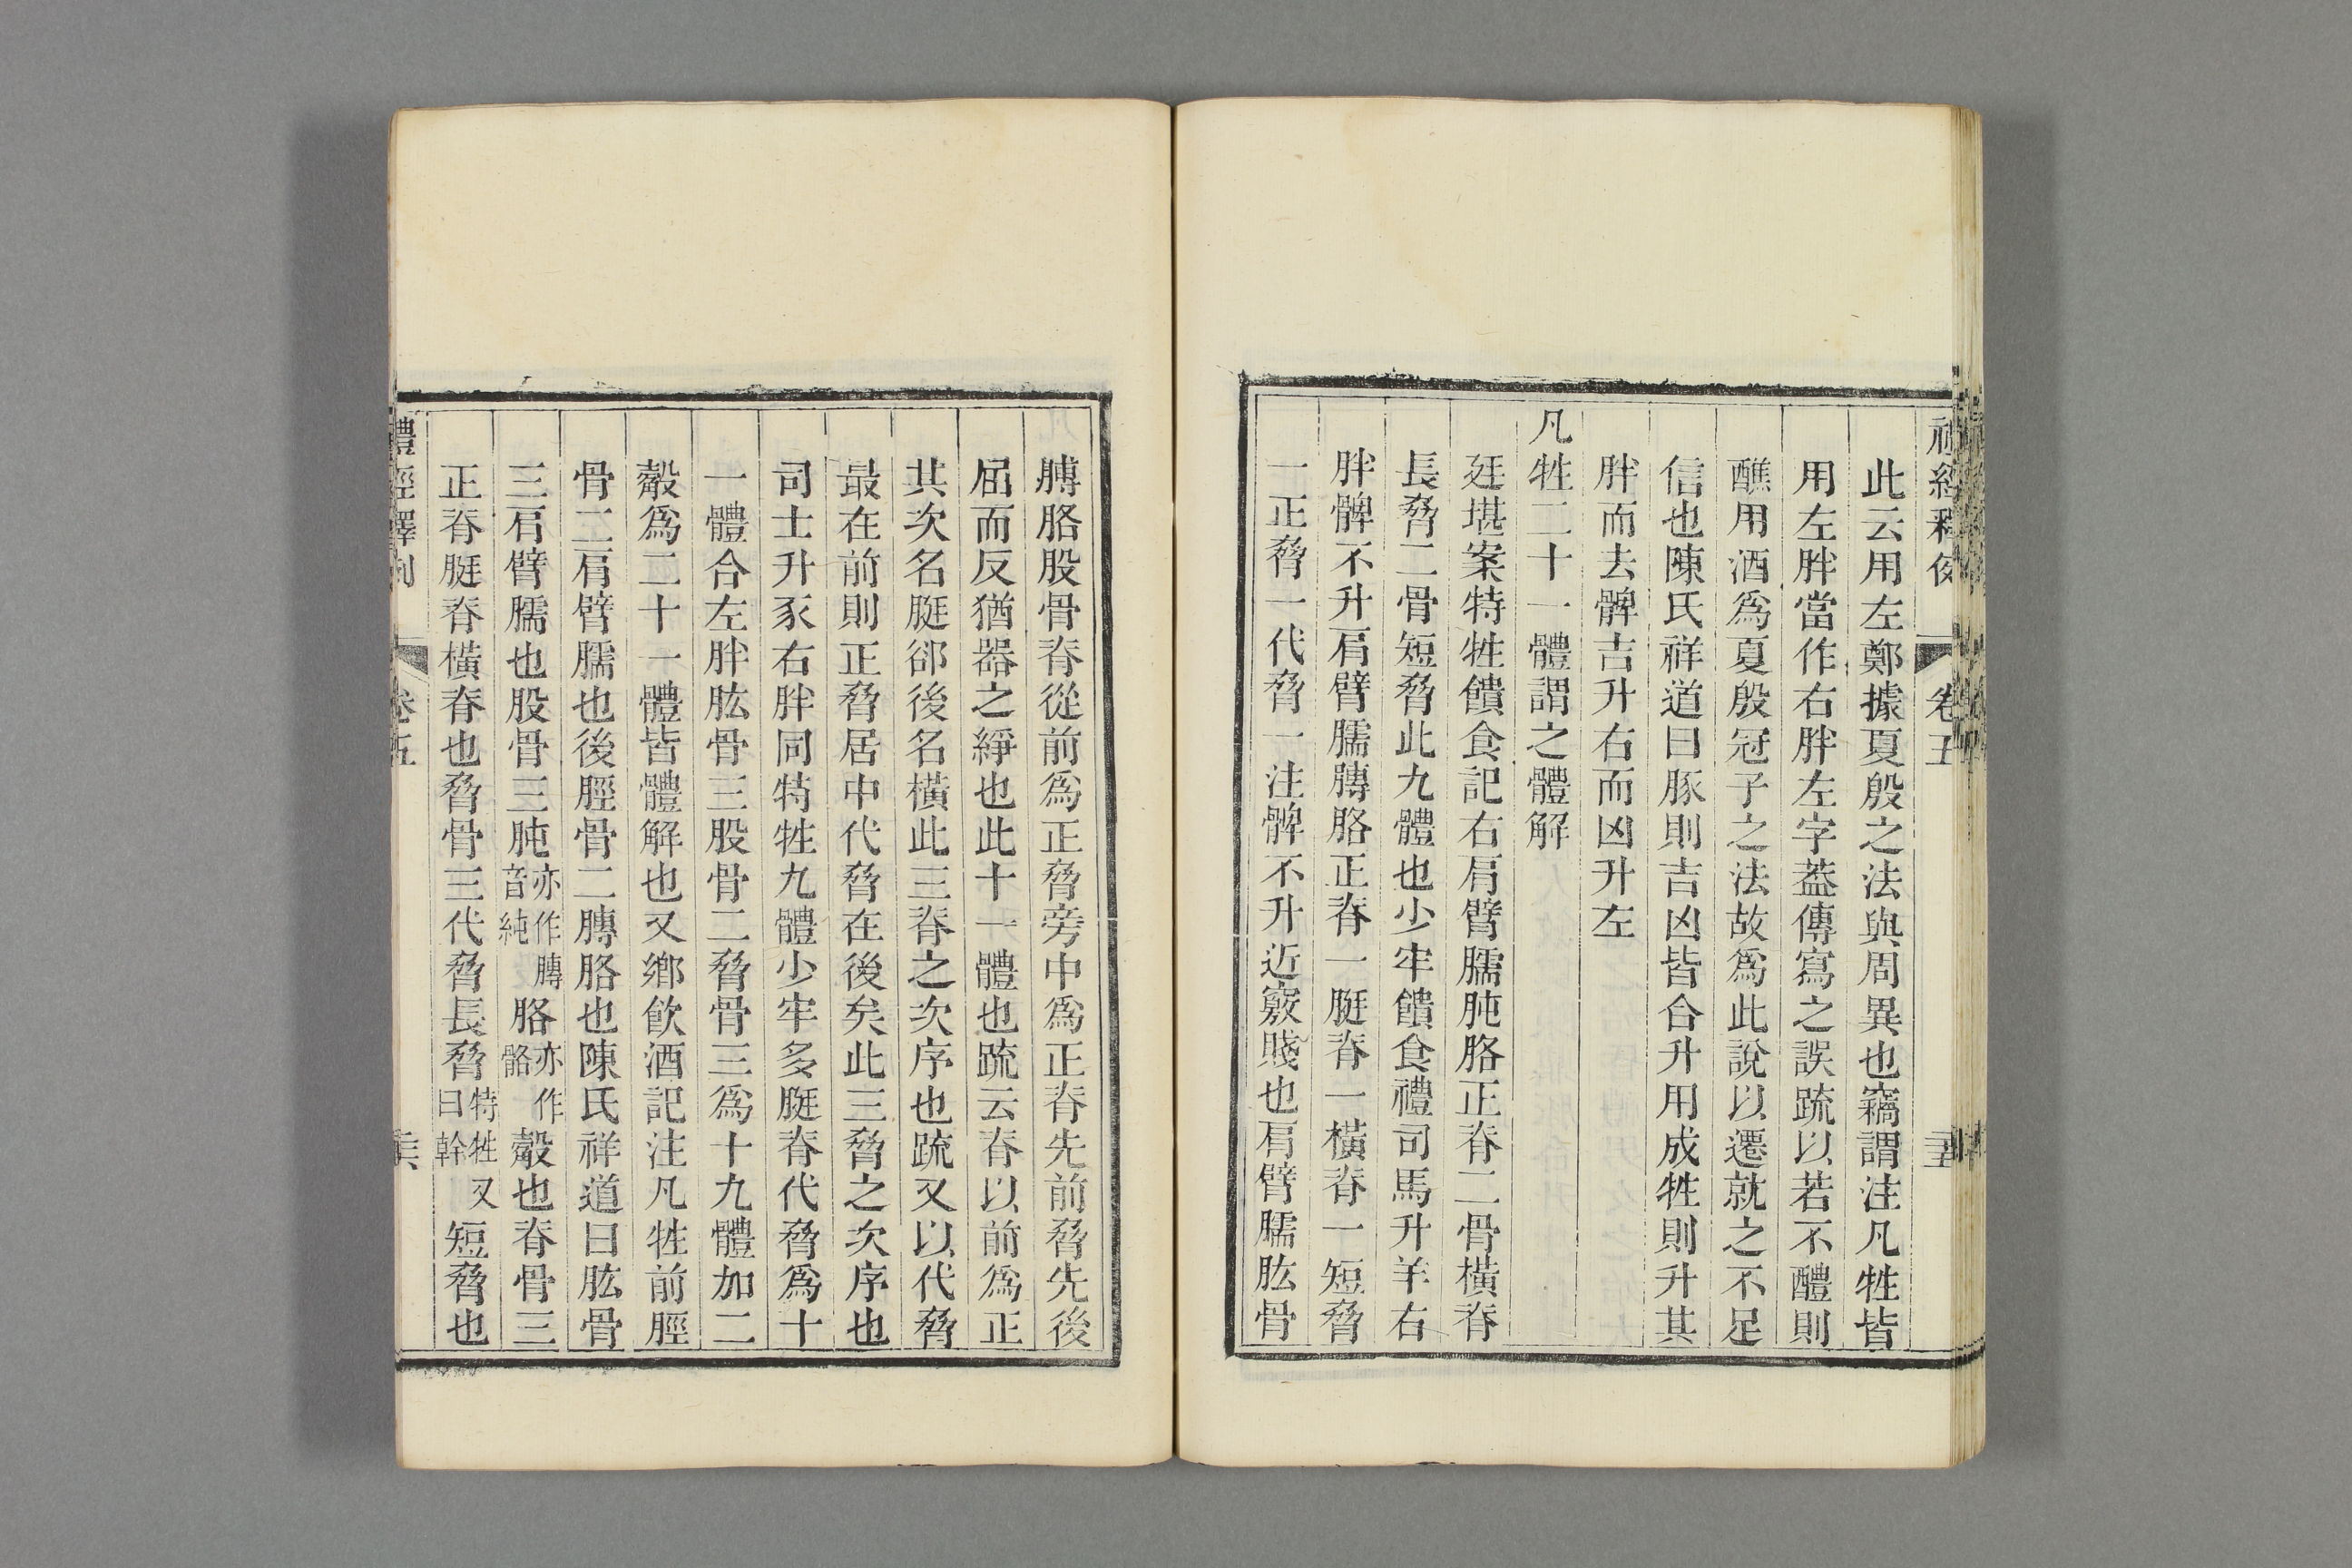 此云用左鄭據夏殷之法與周異也竊謂注凡牲皆
用左胖當作右胖左字葢傳寫之誤疏以若不醴則
醮用酒爲夏殷冠子之法故爲此說以遷就之不足
信也陳氏祥道曰豚則吉凶皆合升用成牲則升其
胖而去髀吉升右而凶升左
凡牲二十一體謂之體解
廷堪案特牲饋食記右肩臂臑肫胳正脊二骨橫脊
長脅二骨短脅此九體也少牢饋食禮司馬升羊右
胖髀不升肩臂臑膞胳正脊一脡脊一橫脊一短脅
一正脅一代脅一注髀不升近竅賤也肩臂臑肱骨
膊胳股骨脊從前爲正脅旁中爲正脊先前脅先後
屈而反猶器之綪也此十一體也疏云脊以前爲正
其次名脡郤後名橫此三脊之次序也疏又以代脅
最在前則正脅居中代脅在後矣此三脅之次序也
司士升豕右胖同特牲九體少牢多脡脊代脅爲十
一體合左胖肱骨三股骨二脅骨三爲十九體加二
觳爲二十一體皆體解也又鄉飲酒記注凡牲前脛
骨二肩臂臑也後脛骨二膞胳也陳氏祥道曰肱骨
三肩臂臑也股骨三肫亦作膞音純胳亦作骼觳也脊骨三
正脊脡脊橫脊也脅骨三代脅長脅特牲又曰幹短脅也
禮經釋例 卷五